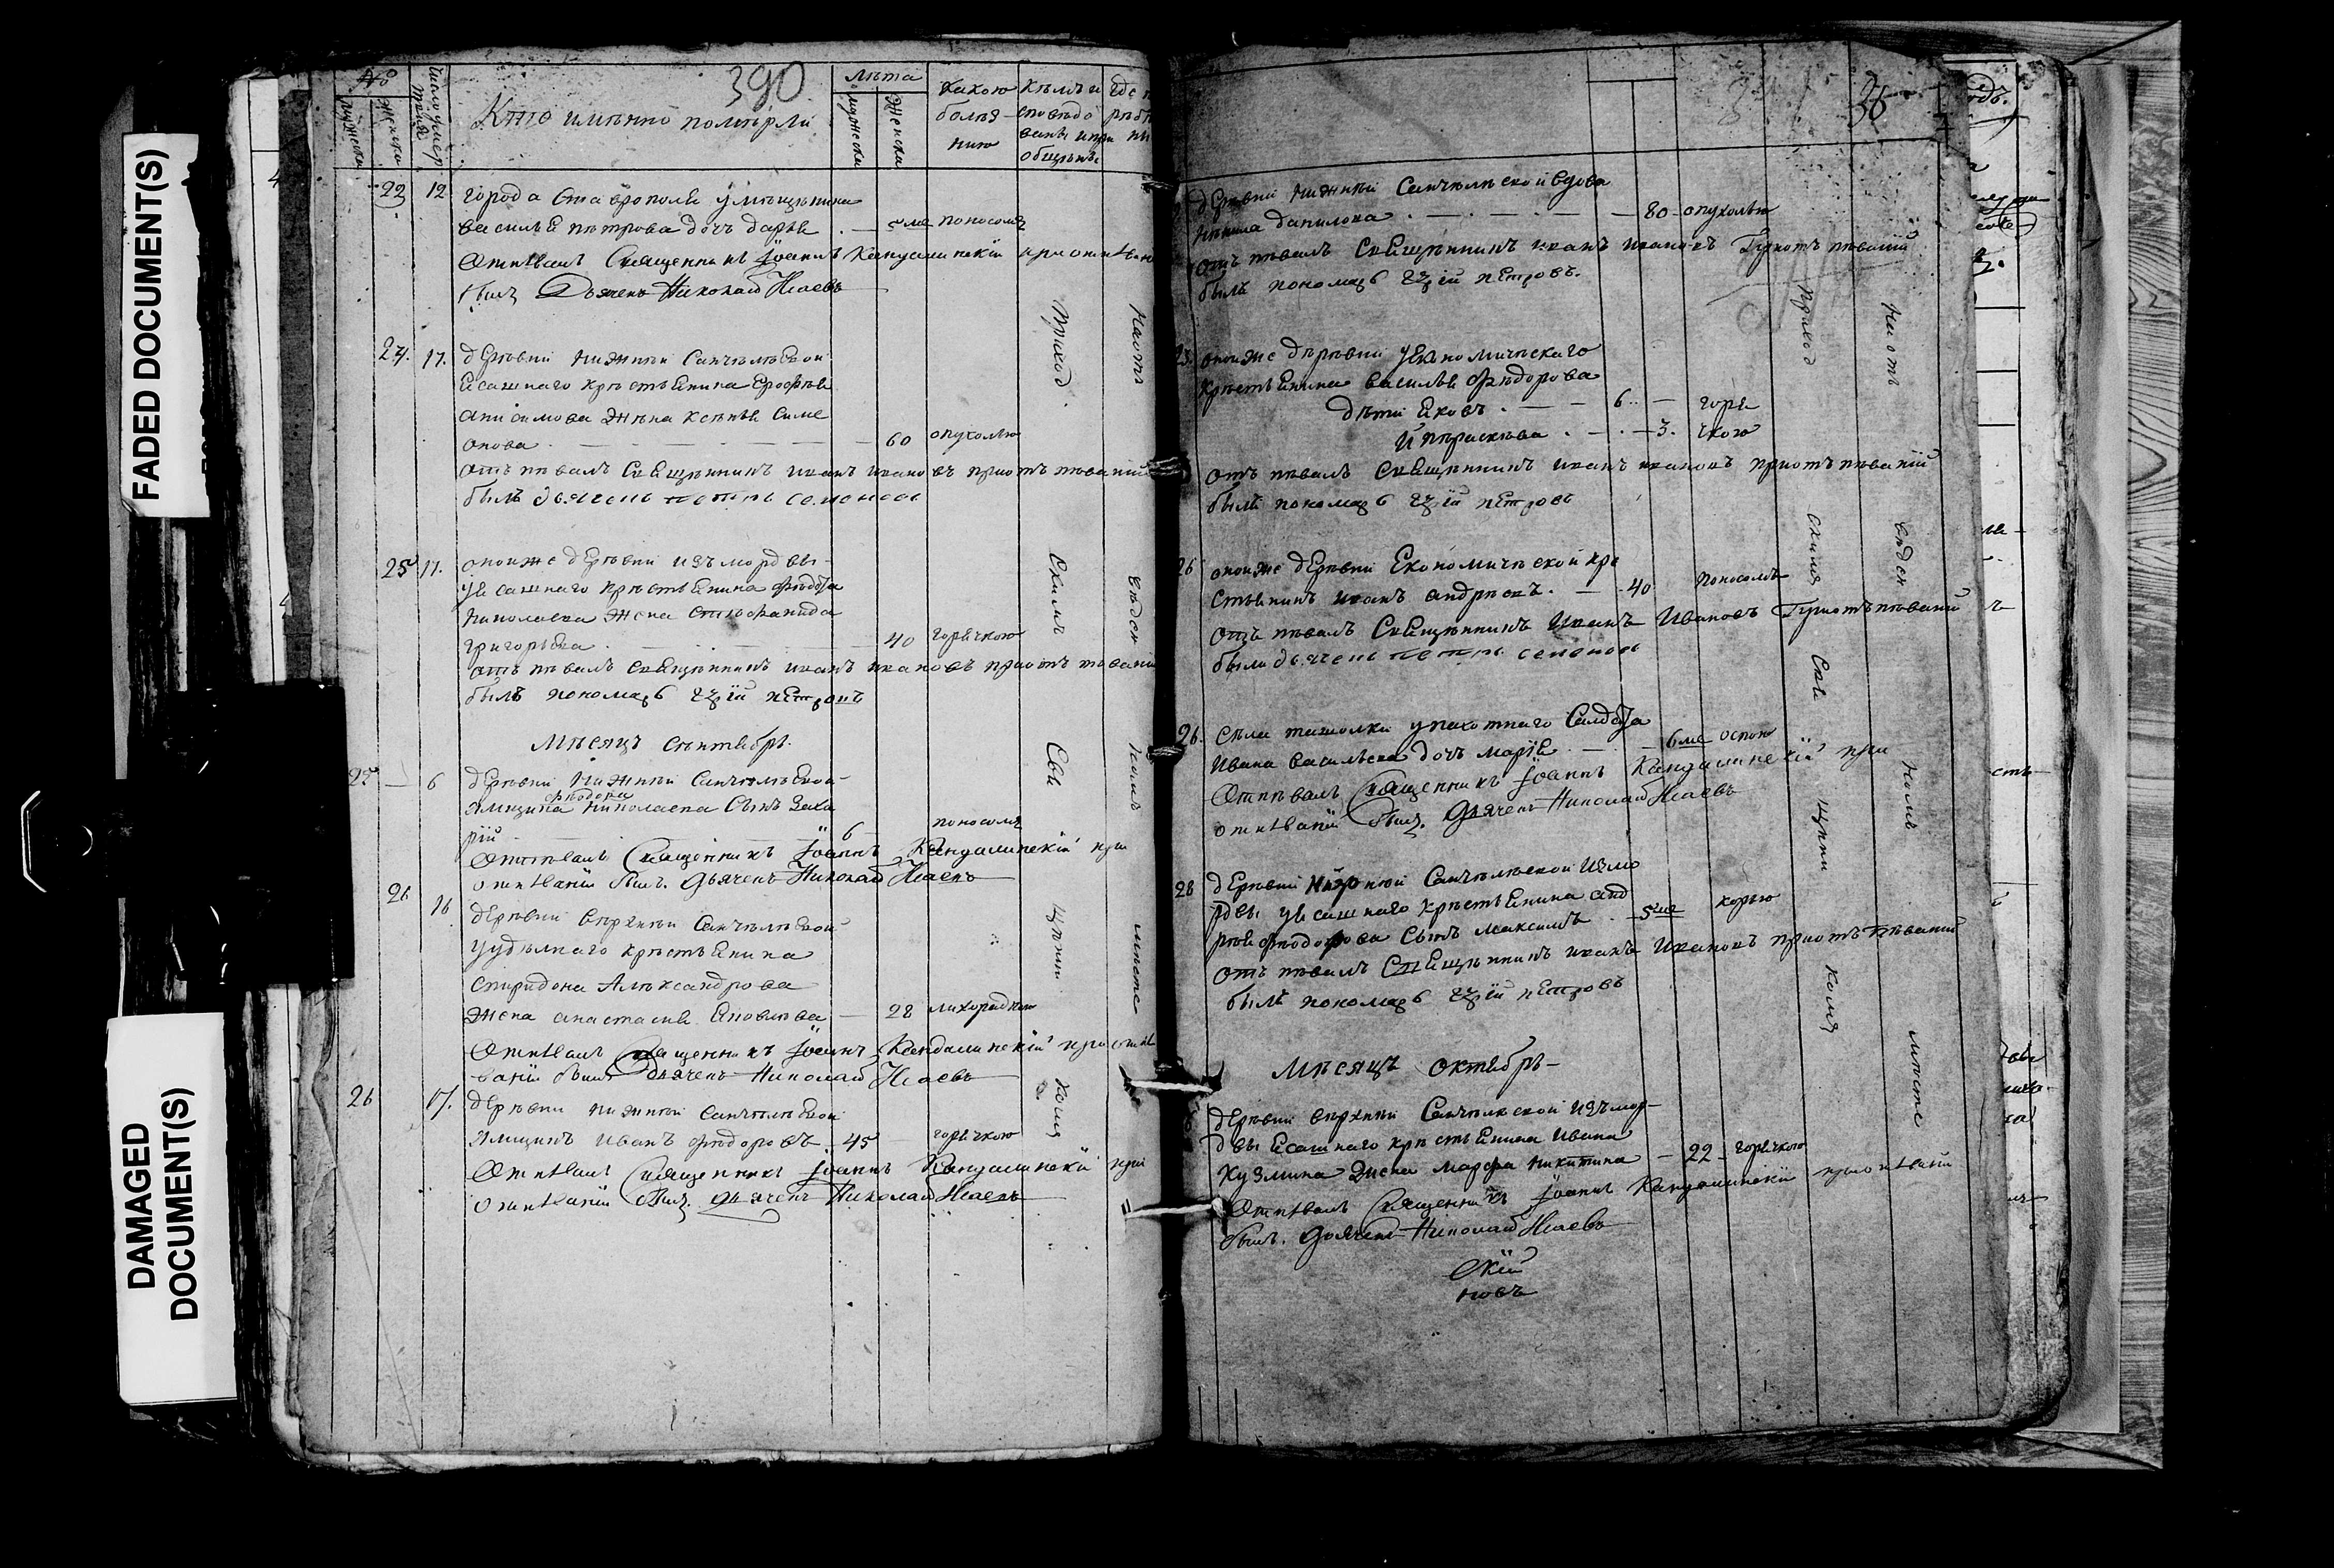 FADED DOCUMENT(S)
DAMAGED DOCUMENT(S)
390
№
мужеска
женска
Число умер
Кто имѣнно померли
лѣта
мужеска
женска
какою болѣз нию
кѣмъ и сповѣдо ваны и при общены
где
22 12. города Ставрополя у мѣщенина
василья петрова дочь дарья . — 5 ме поносомъ
Отпевалъ Священникъ Iоаннъ Кандалинскiй при отпеван
былъ Дьячекъ Николай Исаевъ
24. 17. дѣревни нижней Санчелѣевой
Есашнаго крестьенина Ерофѣя
анисимова жена ксенья Симе
онова — 60 опухолью
отъ певалъ Свещенникъ иванъ ивановъ приотъ певанiй
былъ дьячекъ петръ семеновъ
25 17. онойже дѣревни изъ мордвы
уесашнаго крестьенина федота
николаева жена стефанида
григорьева — 40 горячкою
отъ певалъ свещенникъ иванъ ивановъ приотъ певанi
былъ пономарь петровъ
Мѣсяцъ сентябрь.
25 — 6 дѣревни нижней Санчелѣевой
ямщика федора николаева сынъ заха
рiй — 6 поносомъ
Отпевалъ Священникъ Iоаннъ Кандалинскiй при
отпеванiи былъ. Дьячекъ Николай Исаевъ
26 16 дѣревни верхней Санчелѣевой
уудѣлнаго крестьенина
спиридона Александрова
жена анастасья Яковлева — 28 лихорадкою
Отпевалъ Священникъ Iоаннъ Кандалинскiй при отпе
ванiи былъ Дьячекъ Николай Исаевъ
26 17. дѣревни нижней санчелѣевой
ямщикъ иванъ федоровъ — 45 горячкою
Отпевалъ Священникъ Iоаннъ Кандалинскiй при
отпеванiи былъ. Дьячекъ Николай Исаевъ
приход
скимъ
Све
щенни
комъ
36
дѣревни нижней Санчелѣевской вдова
ненила данилова . — 80 опухолью
отъ певалъ Свещенникъ иванъ ивановъ Приотъ певанiй
былъ пономарь петровъ.
онойже дѣревни уекномическаго
крестьенина василья федорова
дѣти Яковъ . — 6 — горя
И параскева . — 3. чкою
отъ певалъ Свещенникъ иванъ ивановъ приотъ певанiй
былъ пономарь петровъ
онойже дѣревни Економической кре
стьенинъ иванъ андреевъ . — 40 поносомъ
отъ певалъ Свещенникъ Иванъ Ивановъ Приотъпеванiй
былъ дьячекъ петръ семеновъ
26. Села ташолки упахотнаго Салдата
Ивана васильева дочь марья — 6 ме оспою
Отпевалъ Священникъ Iоаннъ Кандалинскiй при
отпеванiй былъ. Дьячекъ Николай Исаевъ
28 дѣревни нижней Санчелѣевской Изъмо
рдвы уесашнаго крестьенина анд
рея федорова Сынъ максимъ . 5 ме корью
отъ певалъ Свещенникъ иванъ Ивановъ приотъ певанiй
былъ пономарь петровъ
Мѣсяцъ октябрь
дѣревни верхней Санчелевской изъмор
двы Есашнаго крестьенина Ивана
Кузмина жена марфа никитина — 22 горячкою
Отпевалъ Священникъ Iоаннъ Кандалинскiй приотпеванiи
былъ. Дьячекъ Николай Исаевъ
приход
скимъ
Све
щенни
комъ
месте